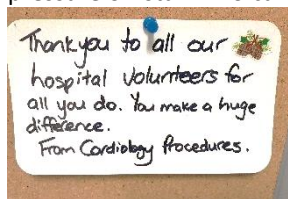 Thank you to all our
hospital volunteers for
all you do. You make a huge
difference.
From Cardiology Procedures.